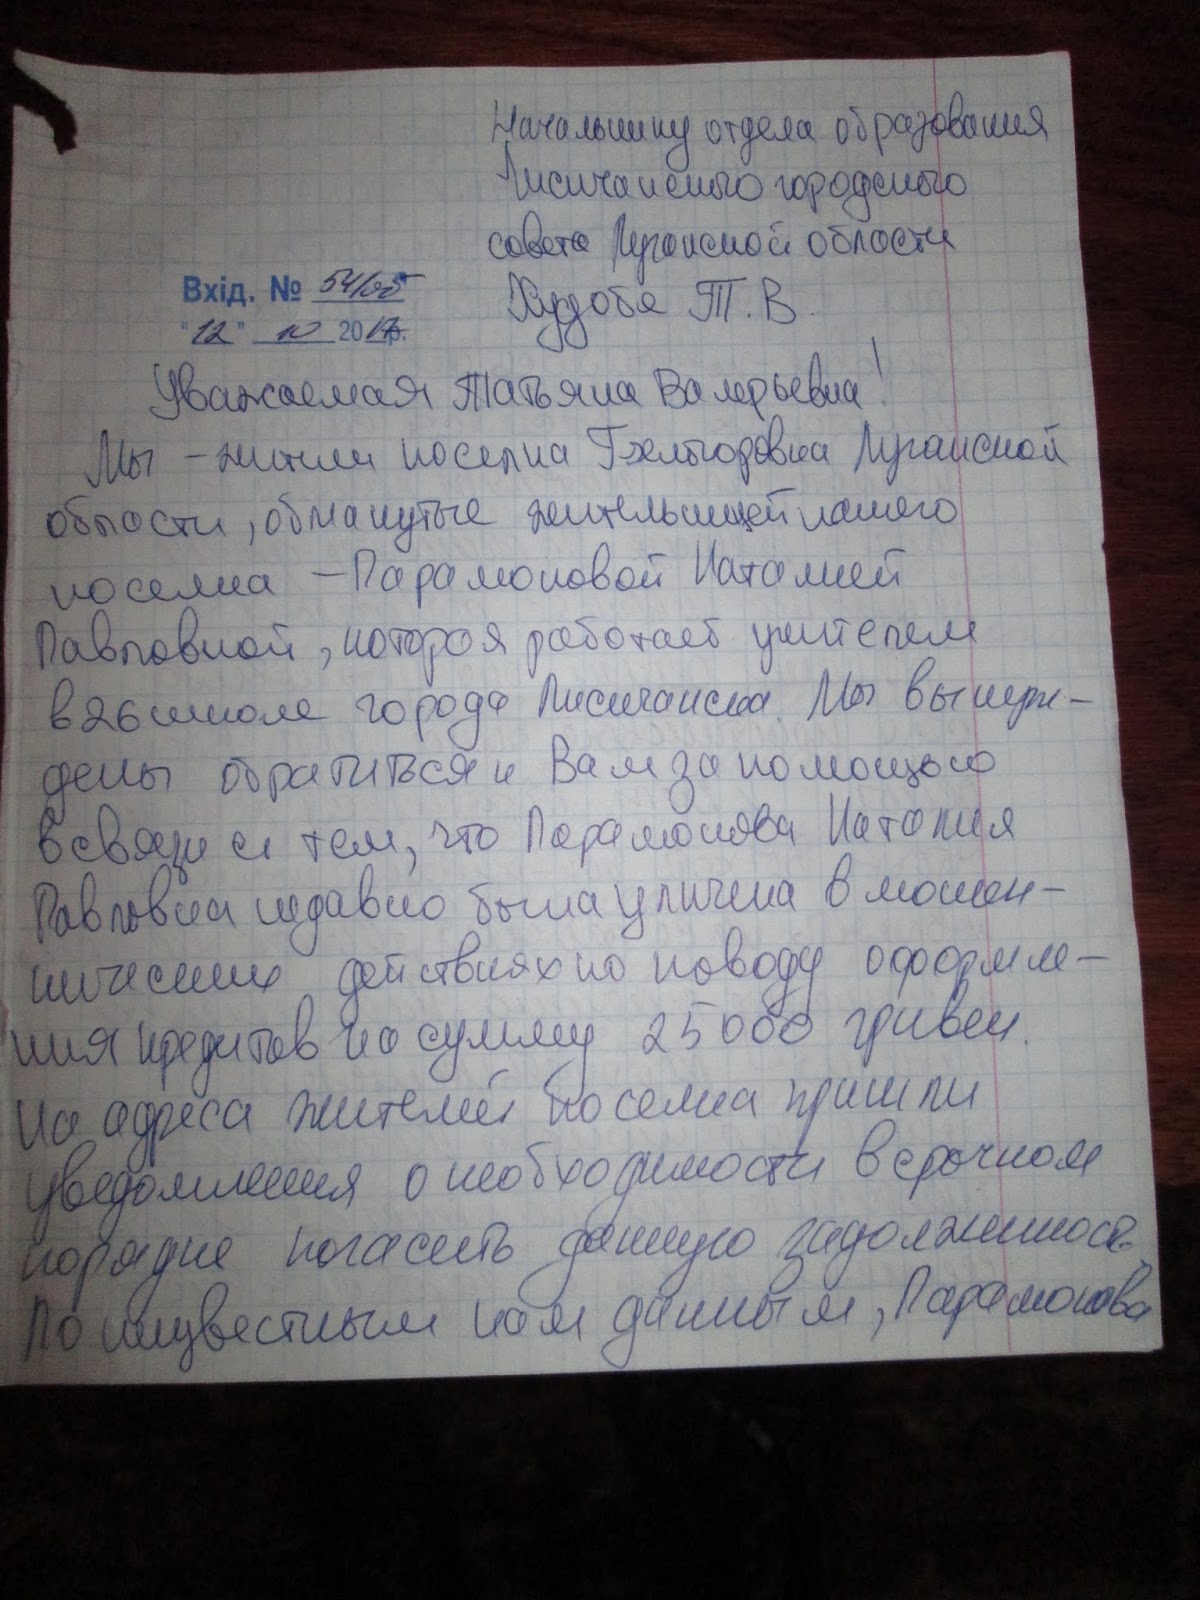 Начальнику отдела образования
Лисичанского городского
совета Луганской области
Худоба Т. В.
Вхід. № 54/об
"12" 10 2017р.
Уважаемая Татьяна Валерьевна!
Мы – жители поселка Белогоровка Луганской
области, обманутые жительницей нашего
поселка – Парамоновой Наталией
Павловной, которая работает учителем
в 26 школе города Лисичанска. Мы вынуж-
дены обратиться к Вам за помощью
в связи с тем, что Парамонова Наталия
Павловна недавно была уличена в мошен-
нических действиях по поводу оформле-
ния кредитов на сумму 25000 гривен.
На адреса жителей поселка пришли
уведомления о необходимости в срочном
порядке погасить данную задолженность.
По известным нам данным, Парамонова